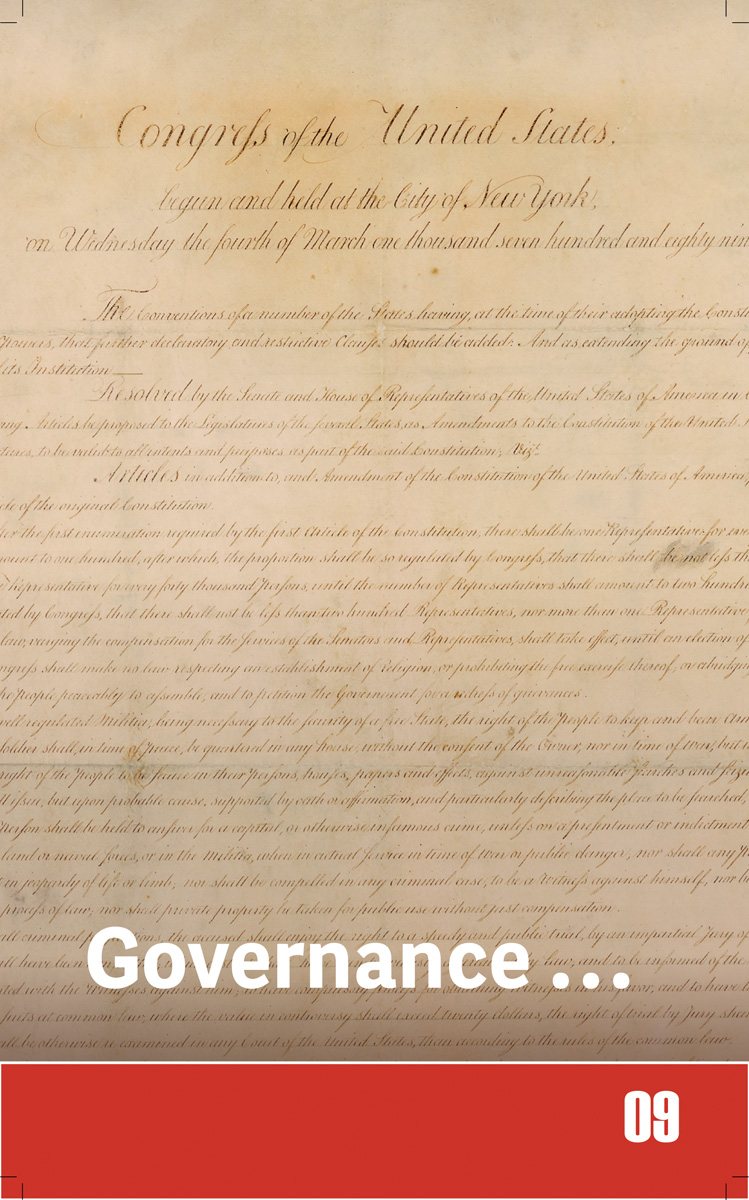 Congress of the United States.
begun and held at the City of New York,
on Wednesday the fourth of March one thousand seven hundred and eighty nin
The Conventions of a number of the States having, at the time of their adopting the Consti
Powers, that further declaratory and restrictive Clauses should be added: And as extending the ground of
its Institution
Resolved by the Senate and House of Representatives of the United States of America in C
ing Articles be proposed to the Legislatures of the several States, as Amendments to the Constitution of the United
to be valid to all intents and purposes as part of the said Constitution; Vizt
Articles in addition to, and Amendment of the Constitution of the United States of America, p
cle of the original Constitution.
ter the first enumeration required by the first Article of the Constitution, there shall be one Representative for eve
mount to one hundred, after which, the proportion shall be so regulated by Congress, that there shall be not less th
Representative for every forty thousand persons, until the number of Representatives shall amount to two hundre
ted by Congress, that there shall not be less than two hundred Representatives, nor more than one Representative
law, varying the compensation for the services of the Senators and Representatives, shall take effect, until an election of
ngress shall make no law respecting an establishment of religion, or prohibiting the free exercise thereof, or abridging
he people peaceably to assemble, and to petition the Government for a redress of grievances.
well regulated Militia, being necessary to the security of a free State, the right of the people to keep and bear Arm
Soldier shall, in time of peace, be quartered in any house, without the consent of the Owner, nor in time of war, but
right of the People to be secure in their persons, houses, papers and effects, against unreasonable searches and seiz
ll issue, but upon probable cause, supported by oath or affirmation, and particularly describing the place to be searched,
Person shall be held to answer for a capital, or otherwise infamous crime, unless on a presentment or indictment
land or naval forces, or in the Militia, when in actual service in time of War or public danger, nor shall any
in jeopardy of life or limb; nor shall be compelled in any criminal case, to be a Witness against himself, nor be
process of law; nor shall private property be taken for public use without just compensation.
all criminal prosecutions, the accused shall enjoy the right to a speedy and public trial, by an impartial Jury of
Governance ...
uits at common law, where the value in controversy shall exceed twenty dollars, the right of trial by Jury shal
all be otherwise re-examined in any Court of the United States, than according to the rules of the common law.
09